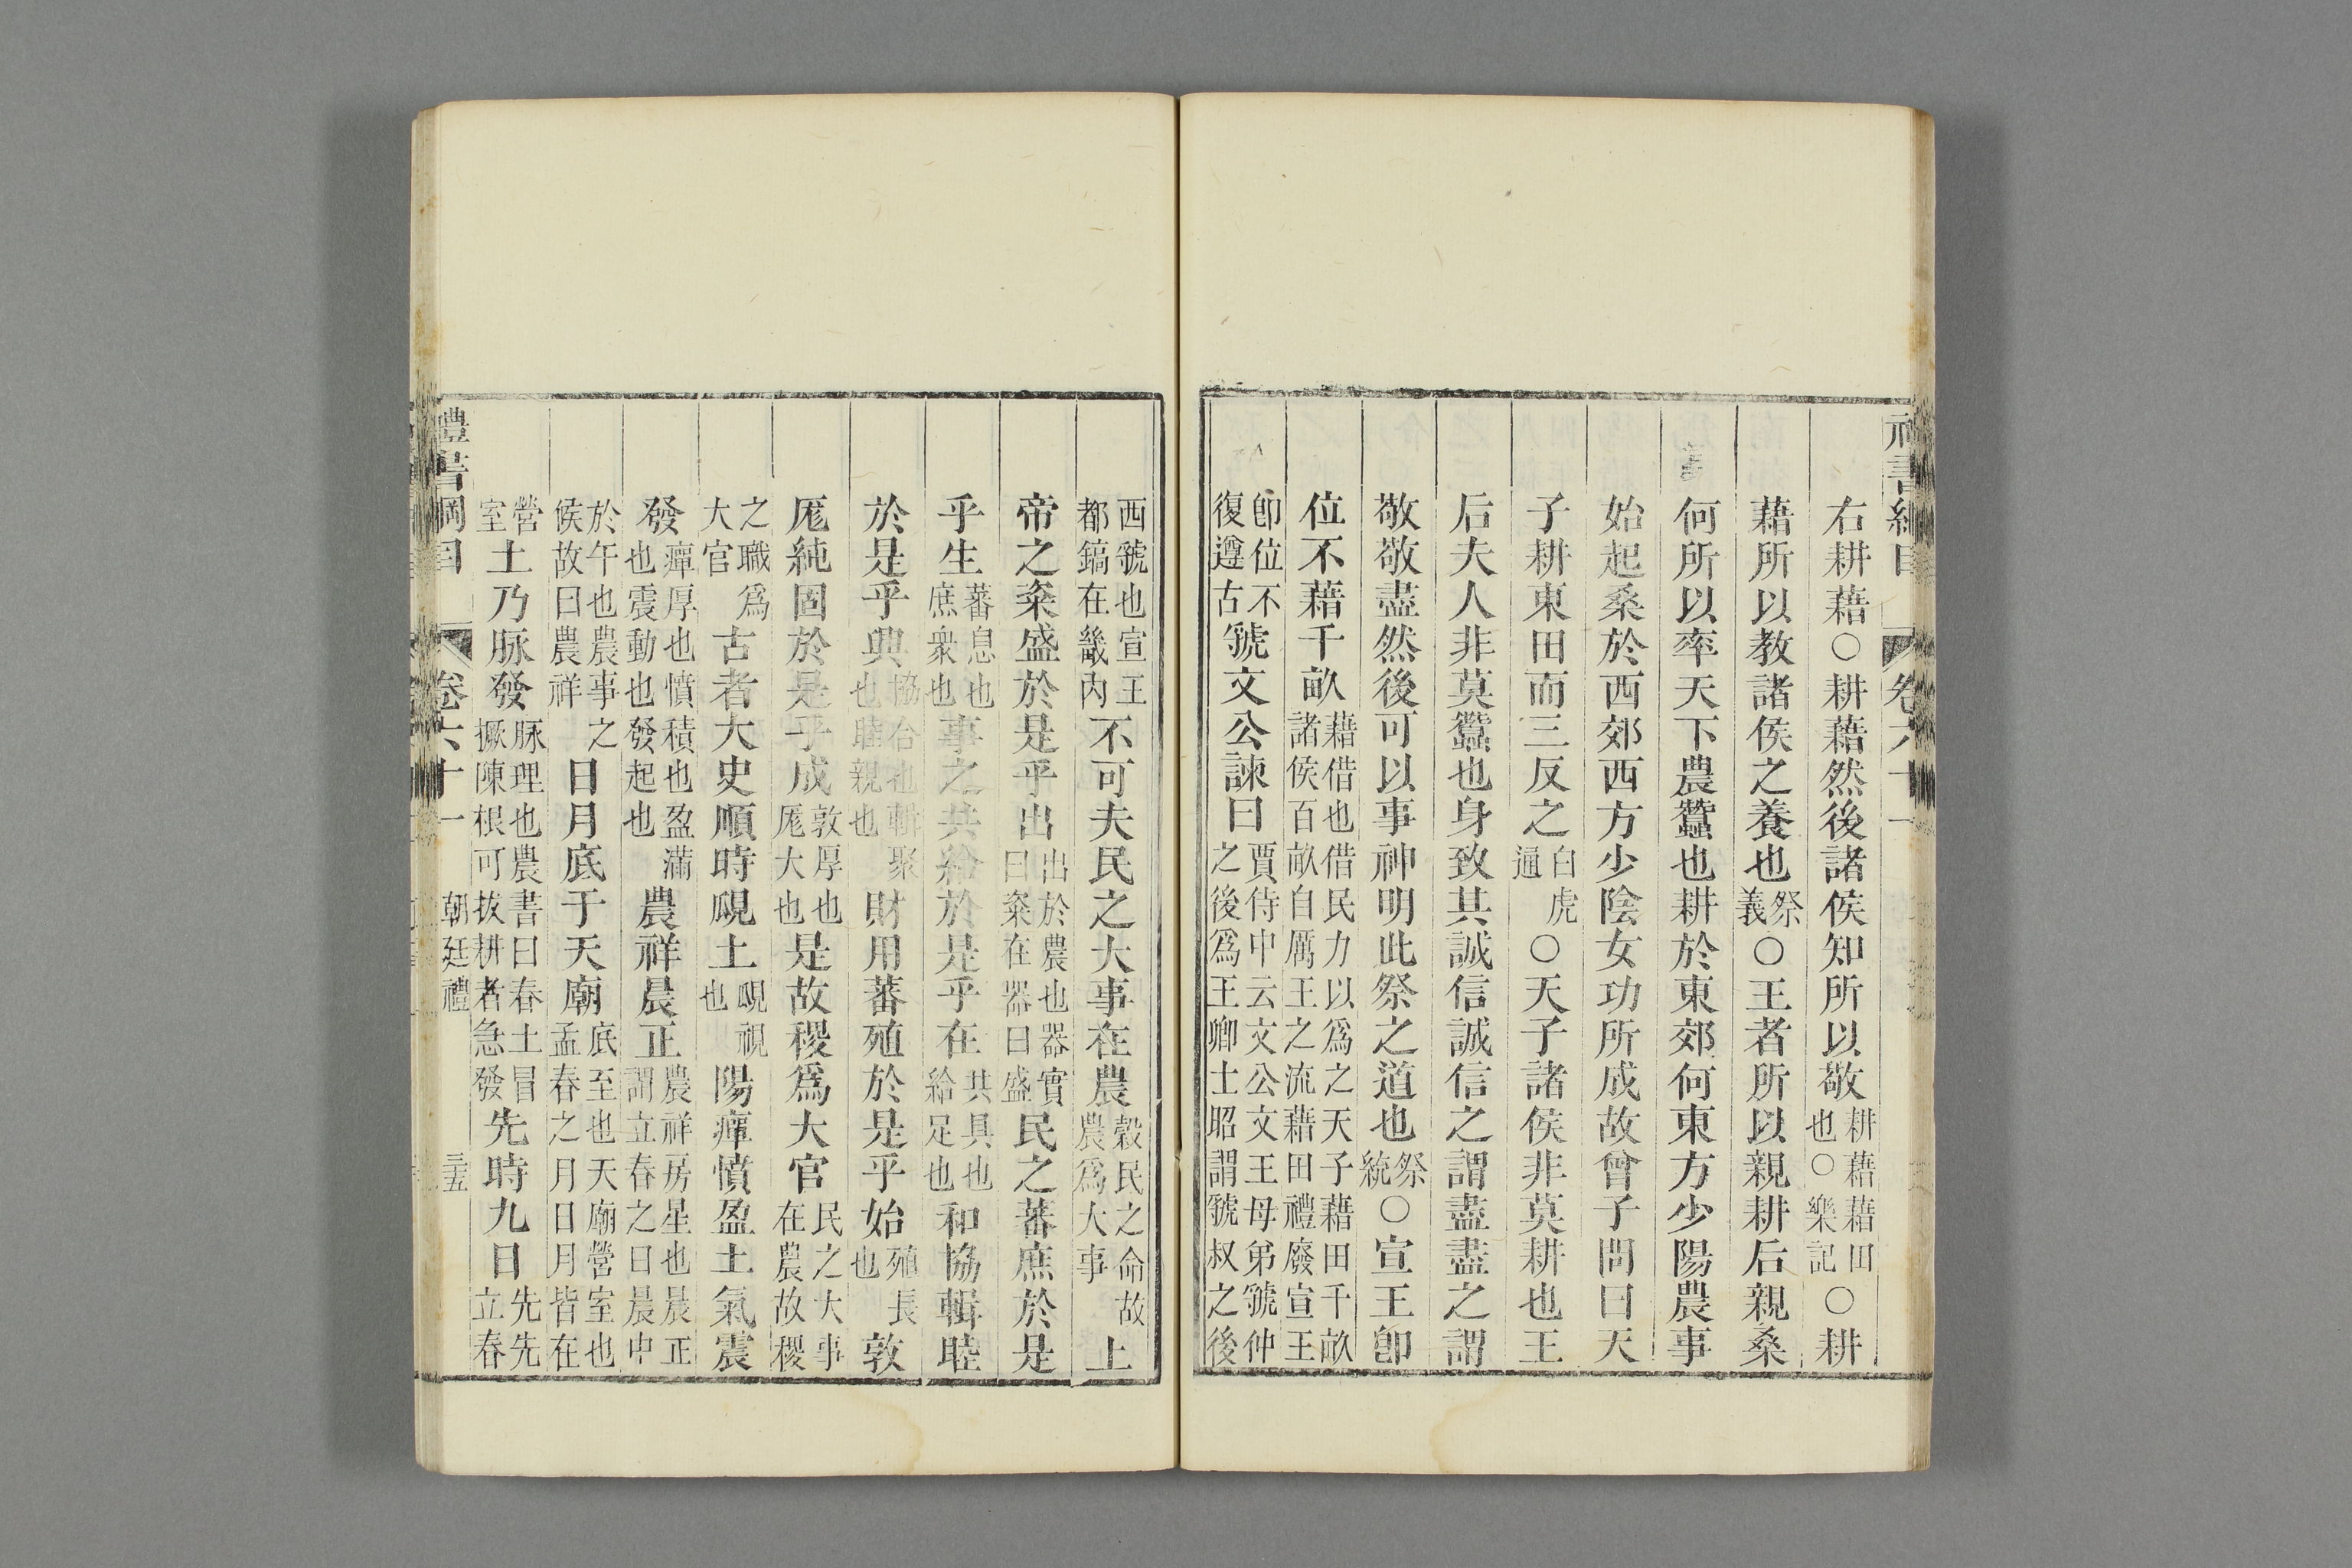 右耕藉○耕藉然後諸侯知所以敬耕藉藉田也○樂記○耕
藉所以教諸侯之養也祭義○王者所以親耕后親桑
何所以率天下農蠶也耕於東郊何東方少陽農事
始起桑於西郊西方少陰女功所成故曾子問曰天
子耕東田而三反之白虎通○天子諸侯非莫耕也王
后夫人非莫蠶也身致其誠信誠信之謂盡盡之謂
敬敬盡然後可以事神明此祭之道也祭統○宣王卽
位不藉千畝藉借也借民力以爲之天子藉田千畝諸侯百畝自厲王之流藉田禮廢宣王
卽位不復遵古虢文公諫曰賈侍中云文公文王母弟虢仲之後爲王卿士昭謂虢叔之後
西虢也宣王都鎬在畿内不可夫民之大事在農穀民之命故農爲大事上
帝之粢盛於是乎出出於農也器實曰粢在器曰盛民之蕃庶於是
乎生蕃息也庶衆也事之共給於是乎在共具也給足也和協輯睦
於是乎興協合也輯聚也睦親也財用蕃殖於是乎始殖長也敦
厖純固於是乎成敦厚也厖大也是故稷爲大官民之大事在農故稷
之職爲大官古者大史順時覛土覛視也陽癉憤盈土氣震
發癉厚也憤積也盈滿也震動也發起也農祥晨正農祥房星也晨正謂立春之日晨中
於午也農事之候故曰農祥日月底于天廟底至也天廟營室也孟春之月日月皆在
營室土乃脉發脉理也農書曰春土冒橛陳根可拔耕者急發先時九日先先立春
禮書綱目 卷六十一 朝廷禮 三五